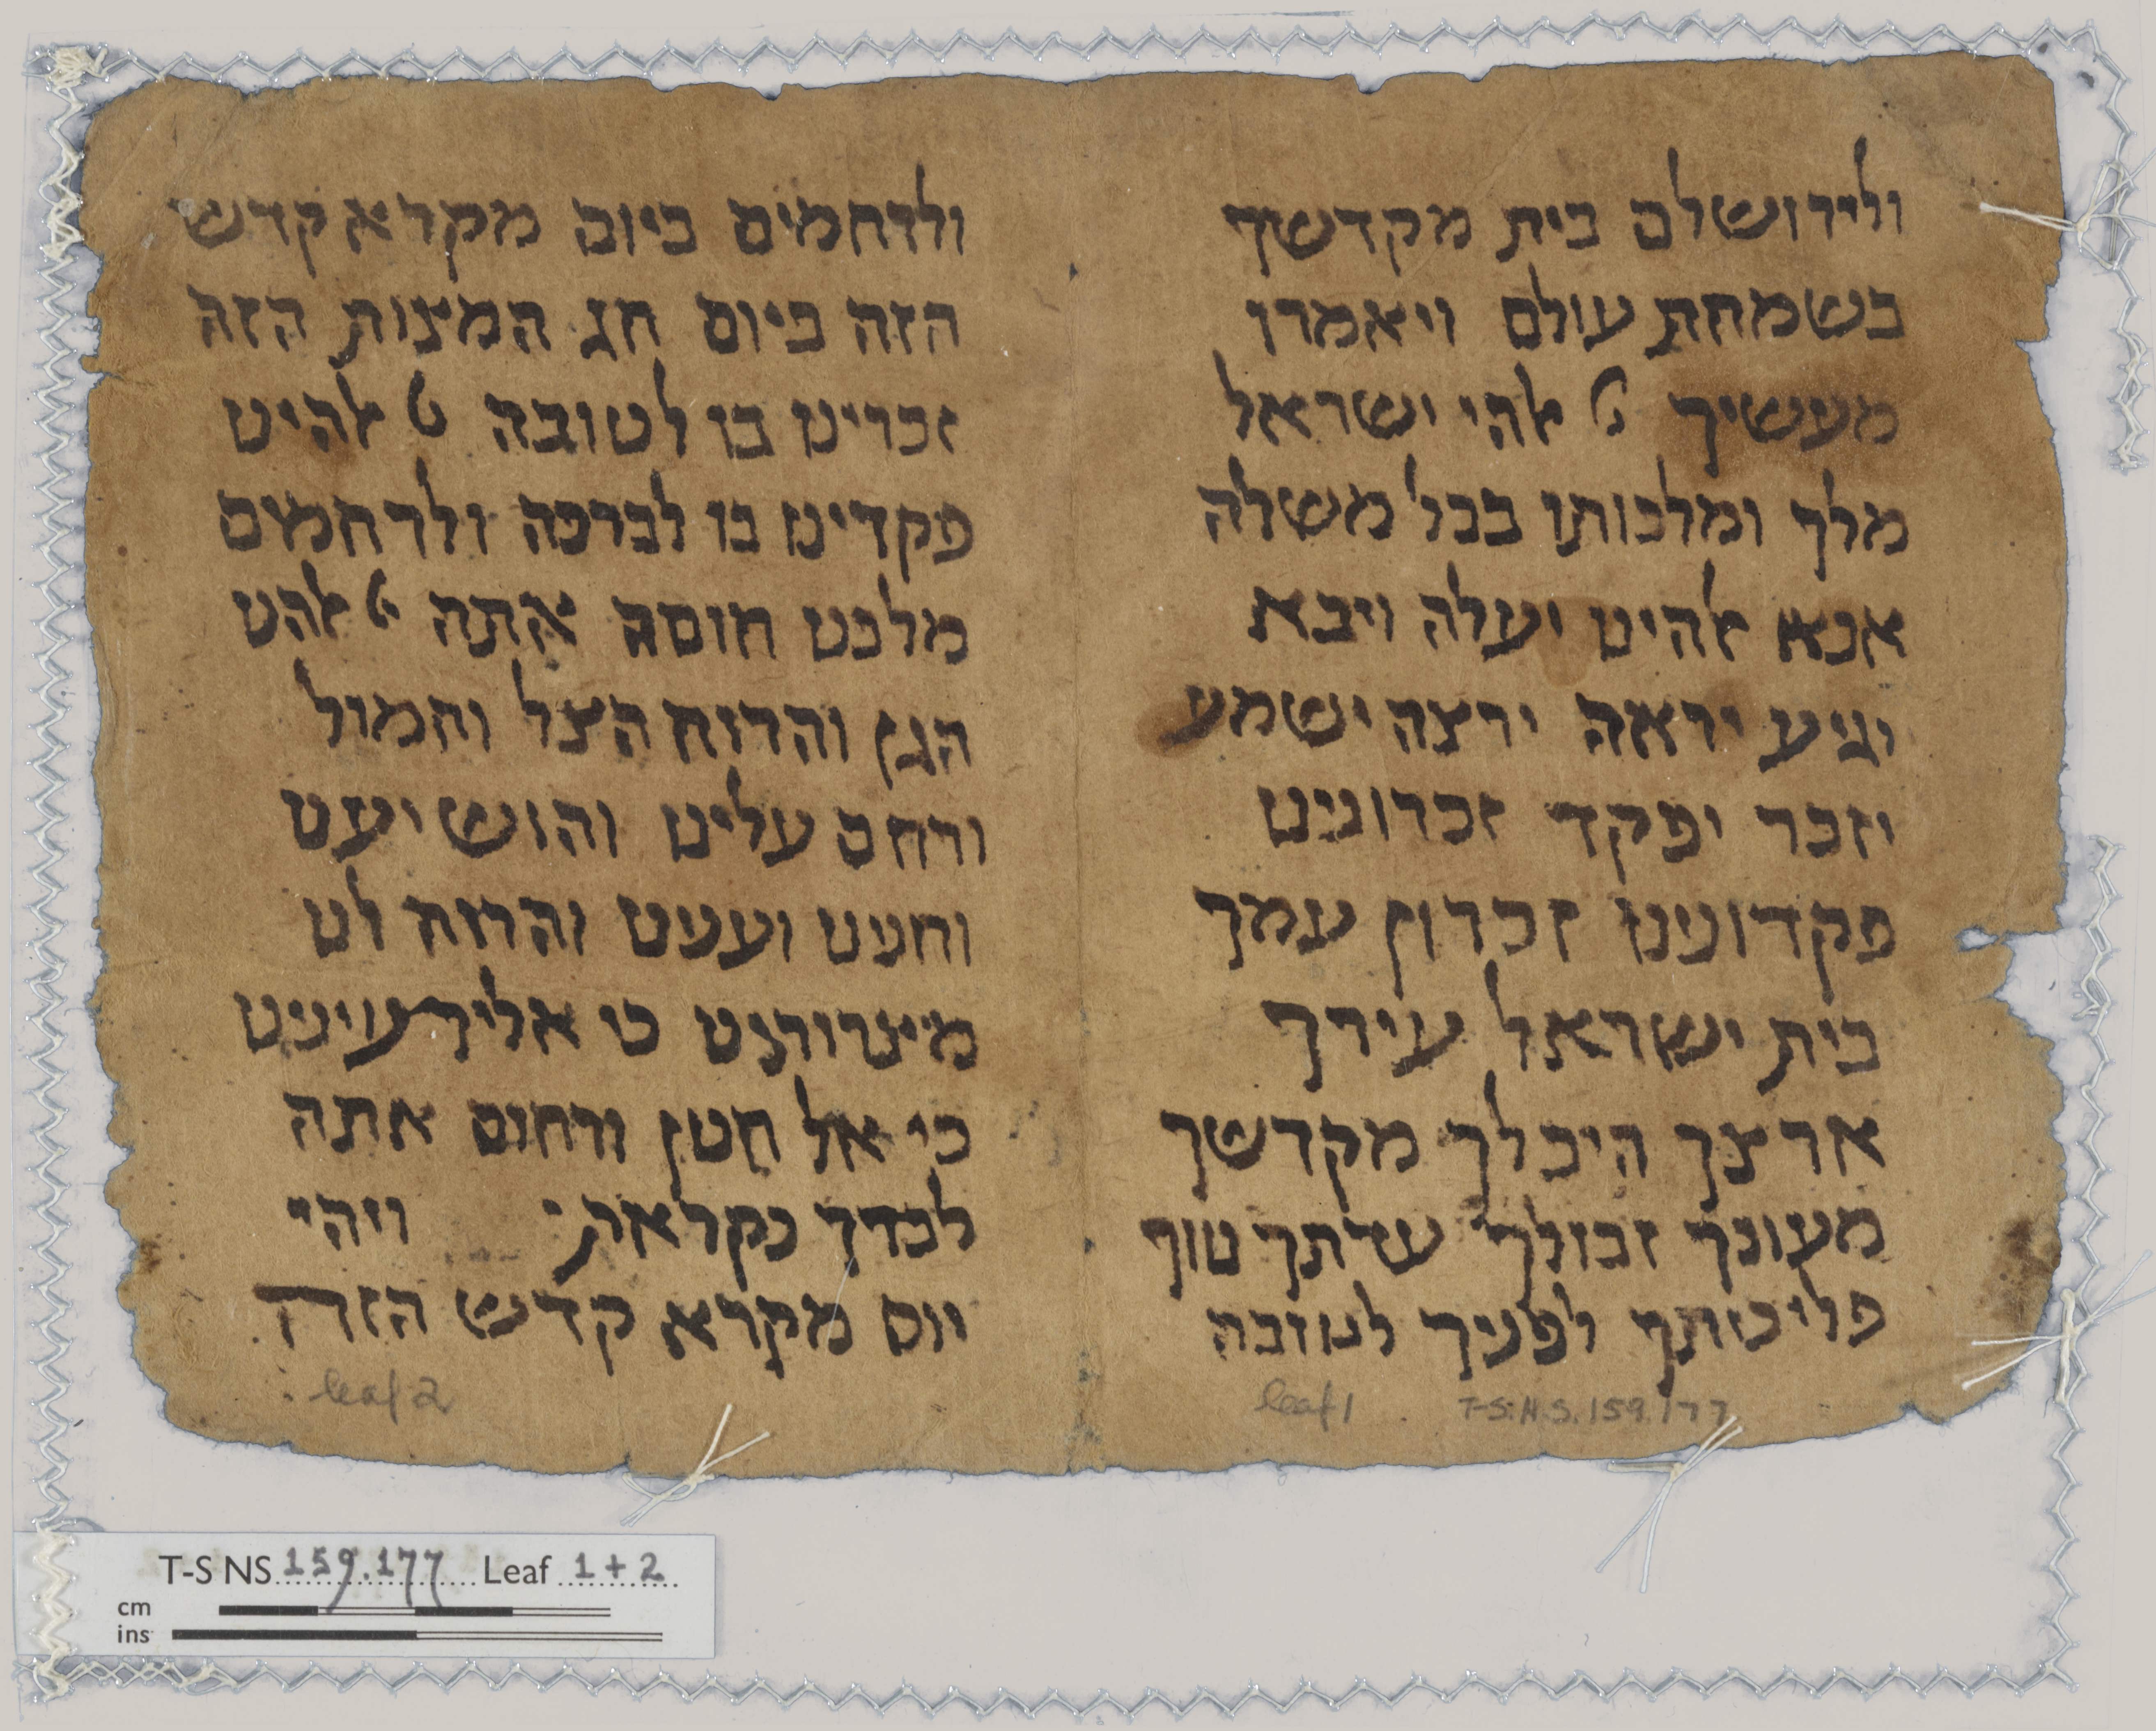 ולירושלם בית מקדשך
בשמחת עולם ויאמרו
מעשיך אלהי ישראל
מלך ומלכותו בכל משלה
אנא אלהינו יעלה ויבא
יגיע יראה ירצה ישמע
יזכר יפקד זכרונינו
פקדונינו זכרון עמך
בית ישראל עירך
ארצך היכלך מקדשך
מעונך זבולך עדתך טוף
פליטתך לפניך לטובה
ולרחמים ביום מקרא קדש
הזה ביום חג המצות הזה
זכרינו בו לטובה אלהינו
פקדינו בו לברכה ולרחמים
מלכנו אתה אלהנו
הגן והרוח הצל וחמול
ורחם עלינו והושיענו
וחנינו ועננו והרוח לנו
מיצרותינו כי אליך עינינו
כי אל חנון ורחום אתה
לבדך נקראת ויהי
יום מקרא קדש הזה
leaf 2
leaf 1 T-S.N.S.159.177
T-S NS 159.177 Leaf 1+2
cm
ins